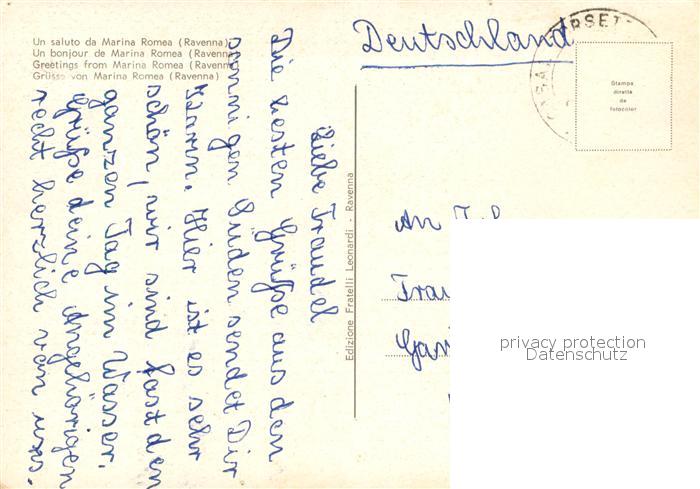 Un saluto da Marina Romea (Ravenna)
Un bonjour de Marina Romea (Ravenna)
Greetings from Marina Romea (Ravenna)
Grüsse von Marina Romea (Ravenna)
Liebe Traudel
Die besten Grüße aus den
sonnigen Süden sendet Dir
Karin. Hier ist es sehr
schön, wir sind fast den
ganzen Tag im Wasser.
Grüße deine Angehörigen
recht herzlich von uns.
Edizione Fratelli Leonardi - Ravenna
Deutschland
Stampa
diretta
da
fotocolor
An
privacy protection
Datenschutz